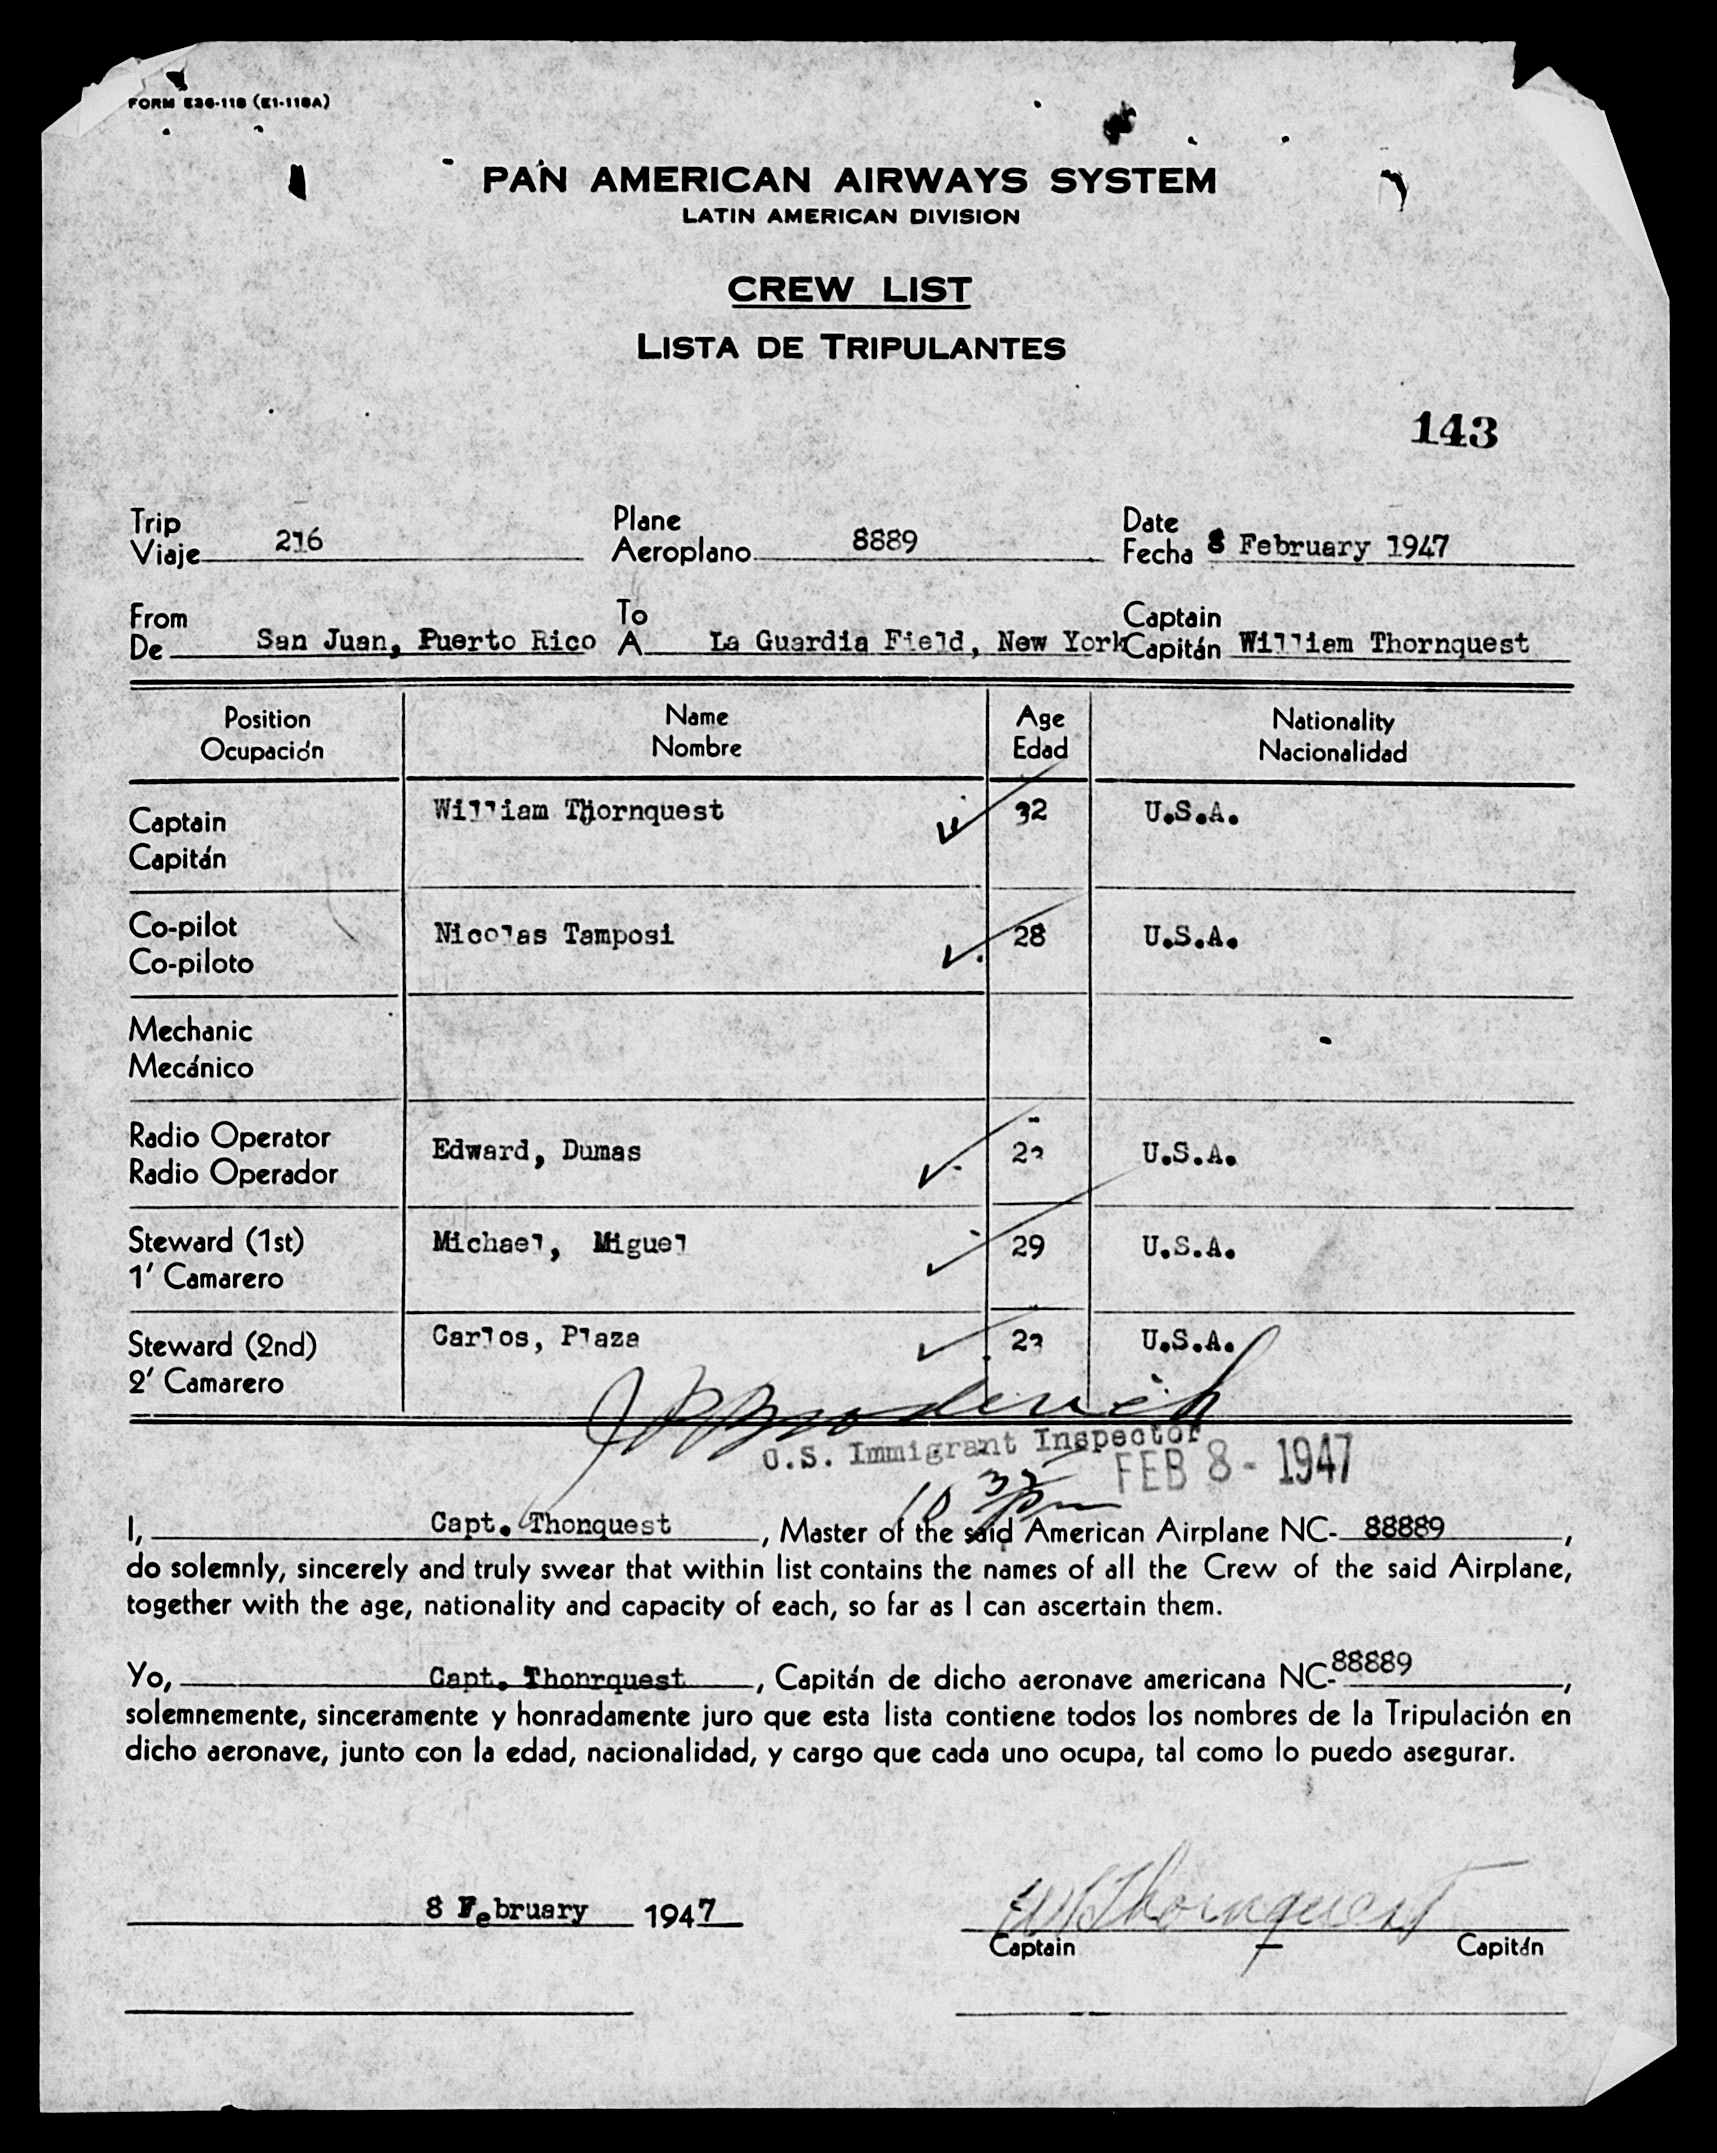 FORM E36-118 (E1-118A)
PAN AMERICAN AIRWAYS SYSTEM
LATIN AMERICAN DIVISION
CREW LIST
LISTA DE TRIPULANTES
143
Trip Plane Date
Viaje 216 Aeroplano 8889 Fecha 8 February 1947
From To Captain
De San Juan, Puerto Rico A La Guardia Field, New York Capitán William Thornquest
Position Name Age Nationality
Ocupación Nombre Edad Nacionalidad
Captain William Thornquest 32 U.S.A.
Capitán
Co-pilot Nicolas Tamposi 28 U.S.A.
Co-piloto
Mechanic
Mecánico
Radio Operator Edward, Dumas U.S.A.
Radio Operador
Steward (1st) Michael, Miguel 29 U.S.A.
1' Camarero
Steward (2nd) Carlos, Plaza U.S.A.
2' Camarero
J P Broderick
U.S. Immigrant Inspector
FEB 8 - 1947
10 32 pm
I, Capt. Thonquest, Master of the said American Airplane NC- 88889,
do solemnly, sincerely and truly swear that within list contains the names of all the Crew of the said Airplane,
together with the age, nationality and capacity of each, so far as I can ascertain them.
Yo, Capt. Thonrquest, Capitán de dicho aeronave americana NC- 88889,
solemnemente, sinceramente y honradamente juro que esta lista contiene todos los nombres de la Tripulación en
dicho aeronave, junto con la edad, nacionalidad, y cargo que cada uno ocupa, tal como lo puedo asegurar.
8 February 1947
Thornquest
Captain Capitán